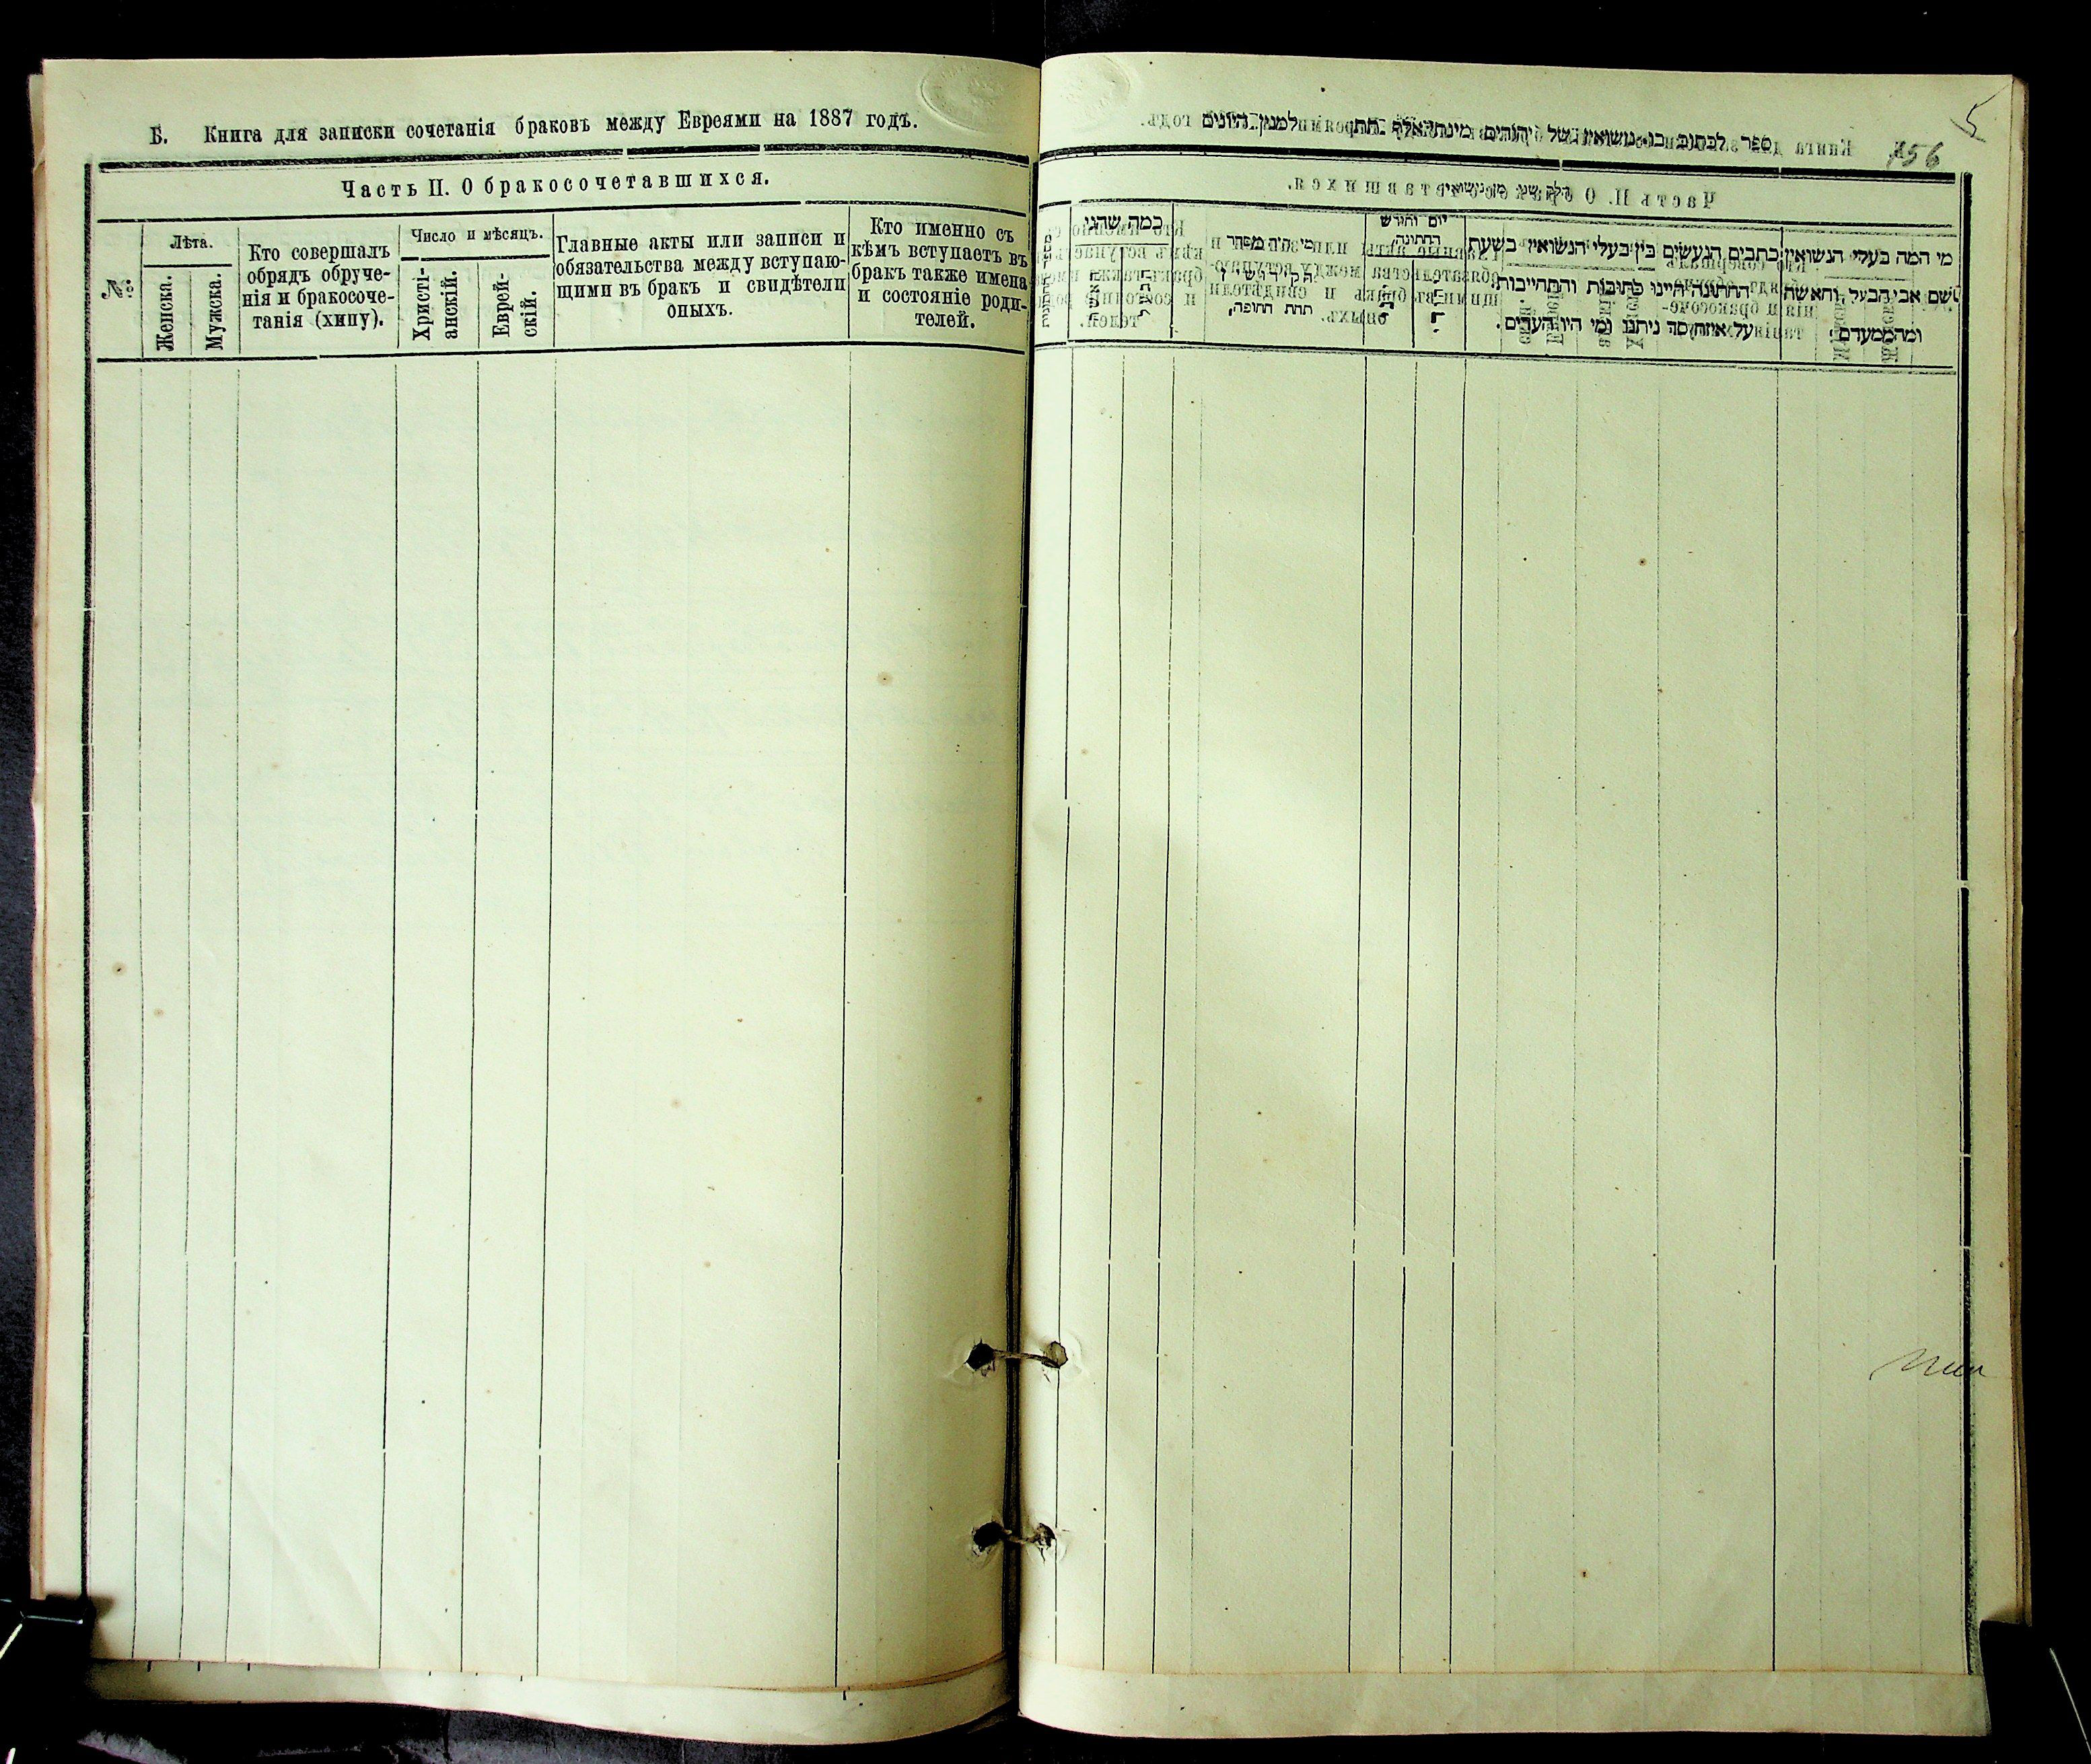 Б. Книга для записки сочетанія браковъ между Евреями на 1887 годъ.
Часть II. О бракосочетавшихся.
№
Лѣта.
Женска.
Мужска.
Кто совершалъ
обрядъ обруче-
нія и бракосоче-
танія (хипу).
Число и мѣсяцъ.
Христі-
анскій.
Еврей-
скій.
Главные акты или записи и
обязательства между вступаю-
щими въ бракъ и свидѣтели
оныхъ.
Кто именно съ
кѣмъ вступаетъ въ
бракъ также имена
и состояніе роди-
телей.
5
756
ספר לכתוב בו נשואין של יהודים
למנין היונים
מי המה בעלי הנשואין
שם אבי הבעל והאשה
ומה מעמדם:
כתבים הנעשים בין בעלי הנשואין בשעת
החתונה היינו כתובות והתחייבות
על איזה סך ניתנו ומי היו העדים.
יום וחודש
החתונה,
מי היה מסדר
תחת החופה,
כמה שהגיו